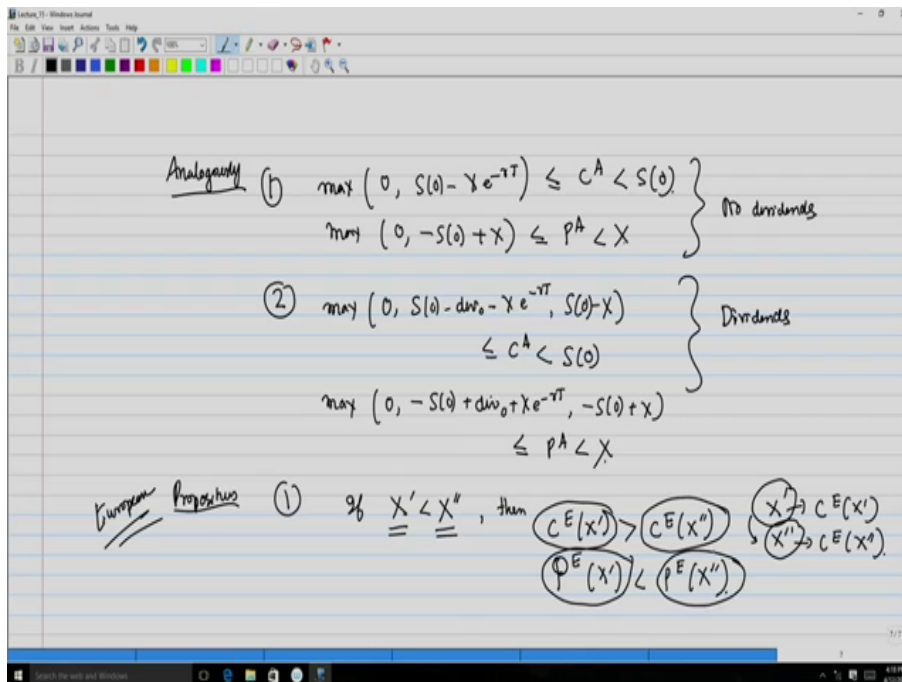 Lecture_15 - Windows Journal
File Edit View Insert Actions Tools Help
100%
B I
Analogously ① max (0, S(0) - Xe^{-rT}) ≤ C^A < S(0).
max (0, -S(0) + X) ≤ P^A < X
No dividends
② max (0, S(0) - div₀ - Xe^{-rT}, S(0) - X)
≤ C^A < S(0)
Dividends
max (0, -S(0) + div₀ + Xe^{-rT}, -S(0) + X)
≤ P^A < X.
European Propositions ① If X' < X'', then C^E(X') > C^E(X'') X' → C^E(X')
X'' → C^E(X'').
P^E(X') < P^E(X'').
7/7
7
Search the web and Windows